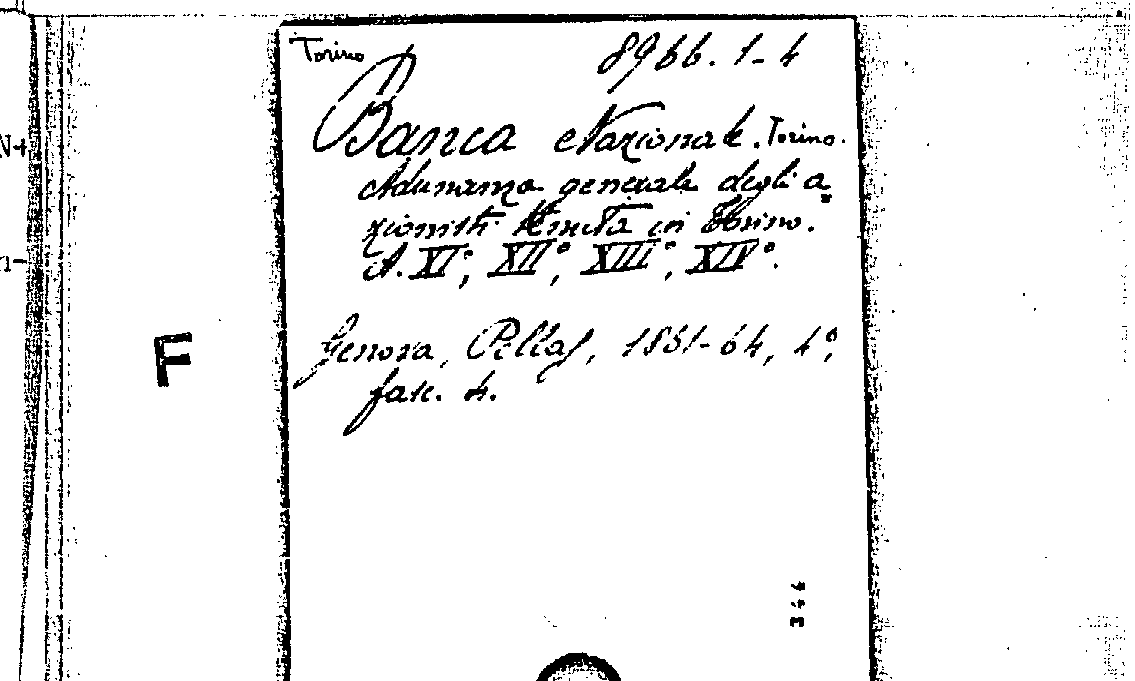 Torino
8966. 1-4
Banca Nazionale. Torino.
Adunanza generale degli a-
zionisti tenuta in Torino.
A. XI°, XII°, XIII°, XIV°.
Genova, Pellas, 1861-64, 4°,
fasc. 4.
F
344